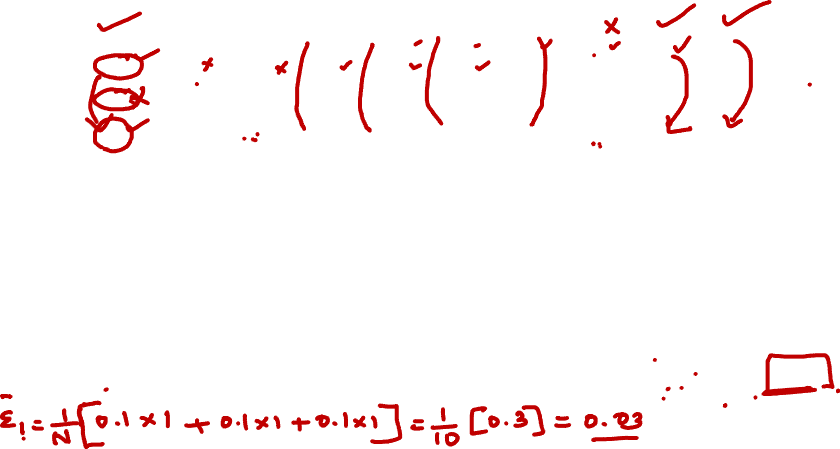 ε̄₁ = 1/N [0.1×1 + 0.1×1 + 0.1×1] = 1/10 [0.3] = 0.03